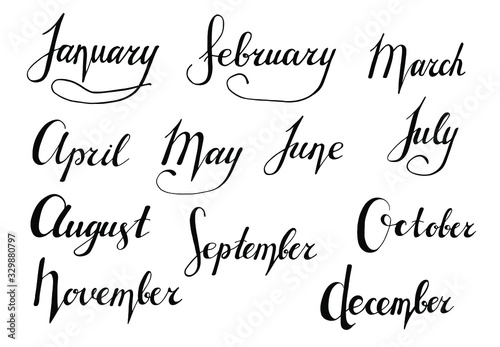 January February March
April May June July
August September October
November december
Adobe Stock | #329880797